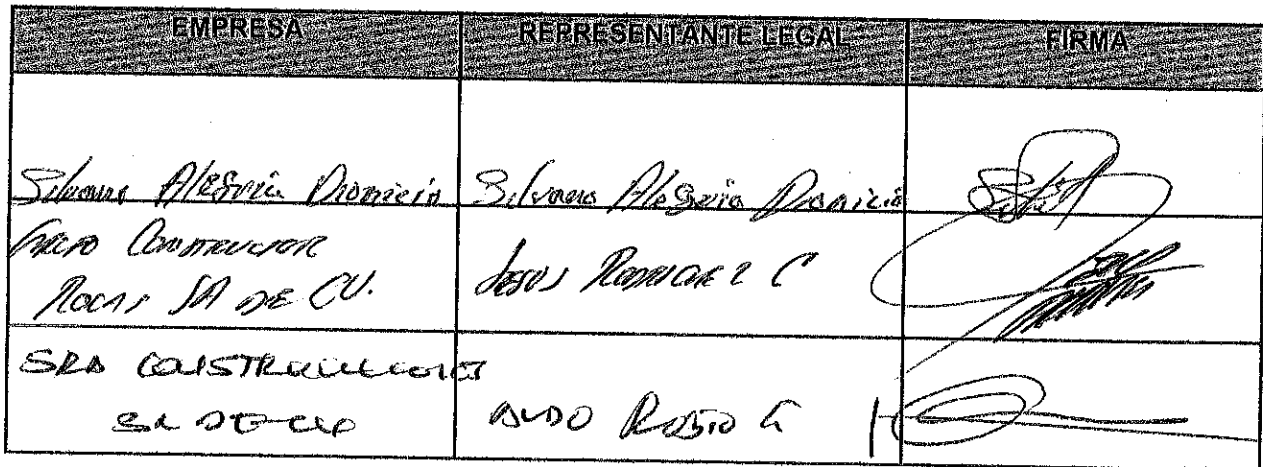 EMPRESA REPRESENTANTE LEGAL FIRMA
Silvano Alegria Dionicio Silvano Alegria Dionicio
Grupo Constructor
Rocas SA DE CV. Jesus Rodriguez C
SRA CONSTRUCCIONES
SA DE CV ALDO RUBIO G